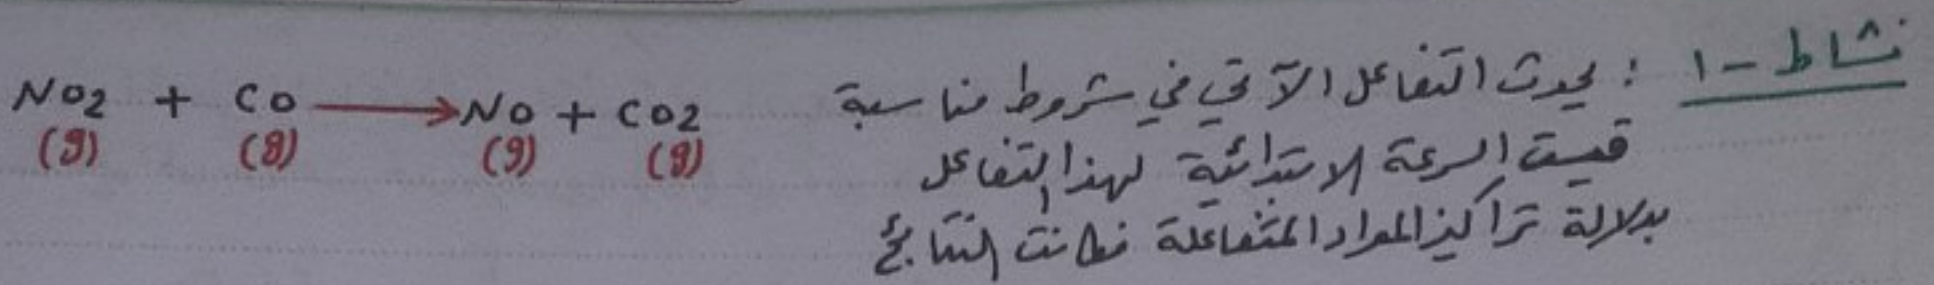 نشاط - ١ : يحدث التفاعل الآتي في شروط مناسبة
NO2 + CO → NO + CO2
(g) (g) (g) (g)
قيست السرعة الابتدائية لهذا التفاعل
بدلالة تراكيز المواد المتفاعلة فكانت النتائج